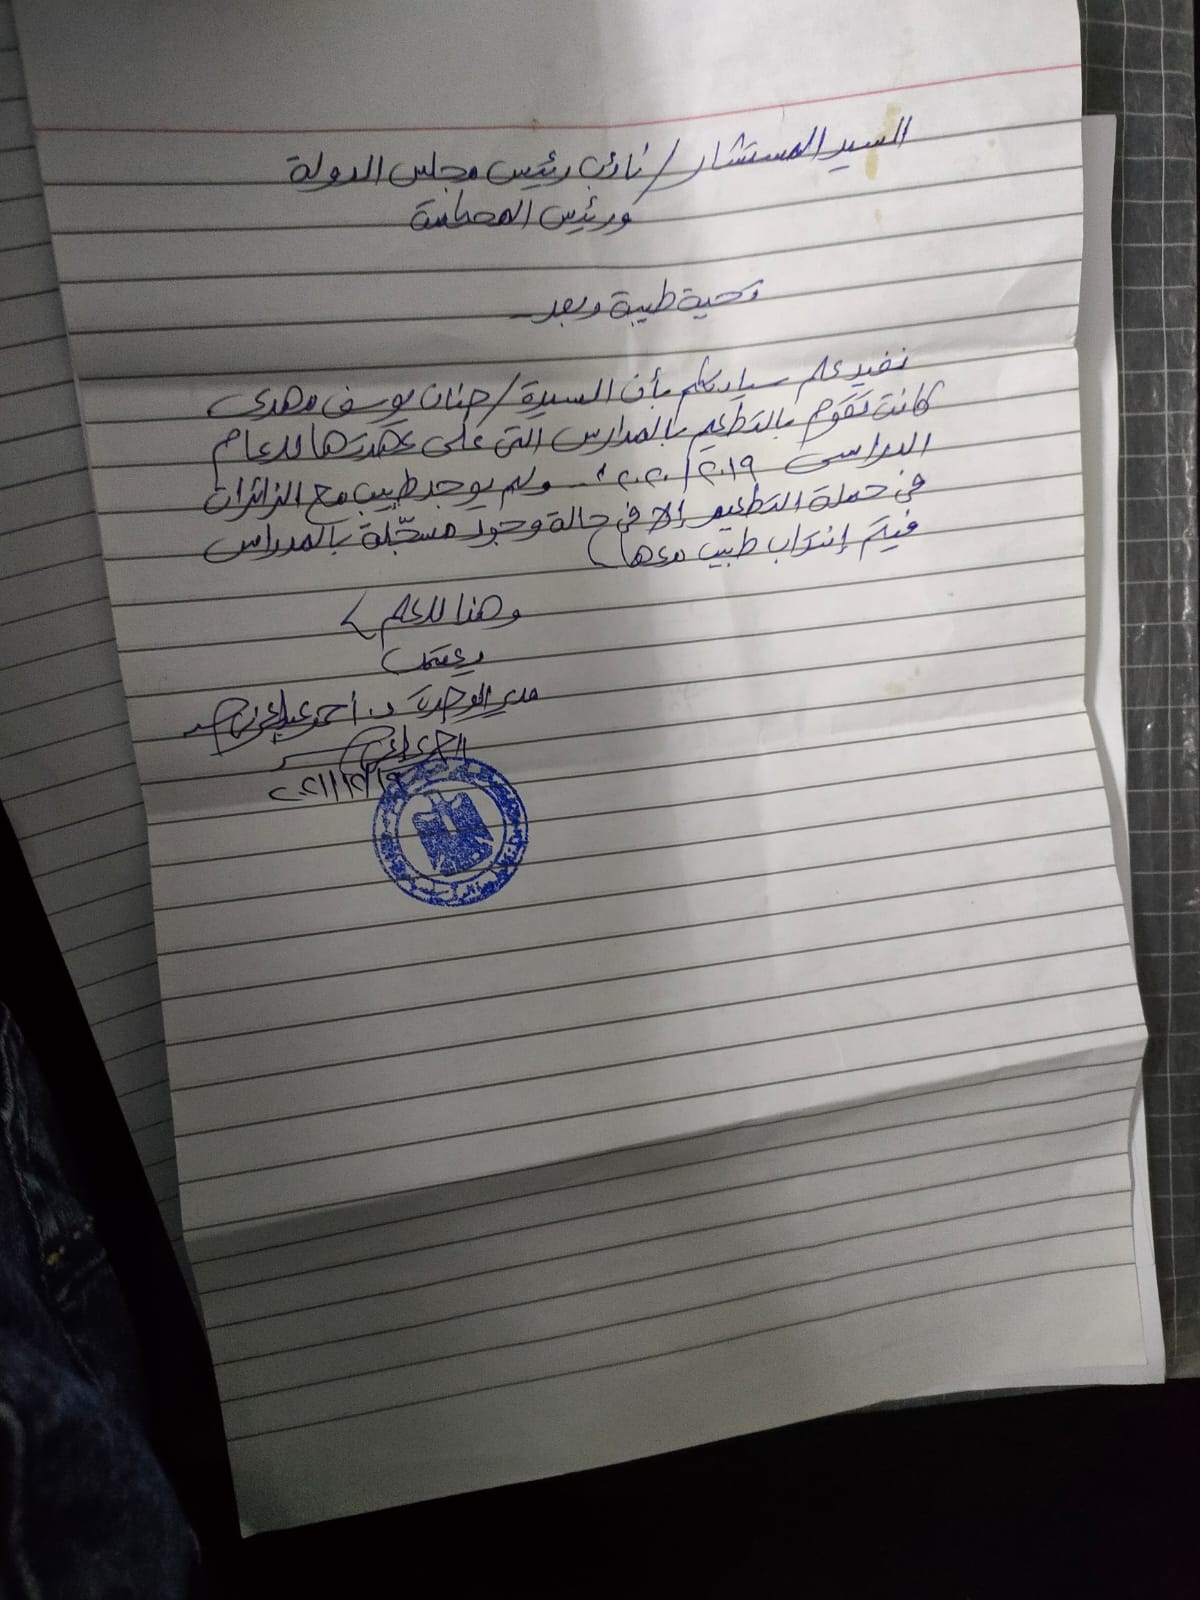 السيد المستشار / نائب رئيس مجلس الدولة
ورئيس المحكمة
تحية طيبة وبعد
نفيد علم سيادتكم بأن السيدة / حنان يوسف مهدى
كانت تقوم بالتطعيم بالمدارس التى على عهدتها للعام
الدراسى ٢٠١٩ / ٢٠٢٠ ولم يوجد طبيب مع الزائرات
فى حملة التطعيم إلا فى حالة وجود مسجلة بالمدراس
فيتم إنتداب طبيب معها
وهذا للعلم
يعتمد
مدير الوحدة د. أحمد
٢٠٢١/١٢/١٩